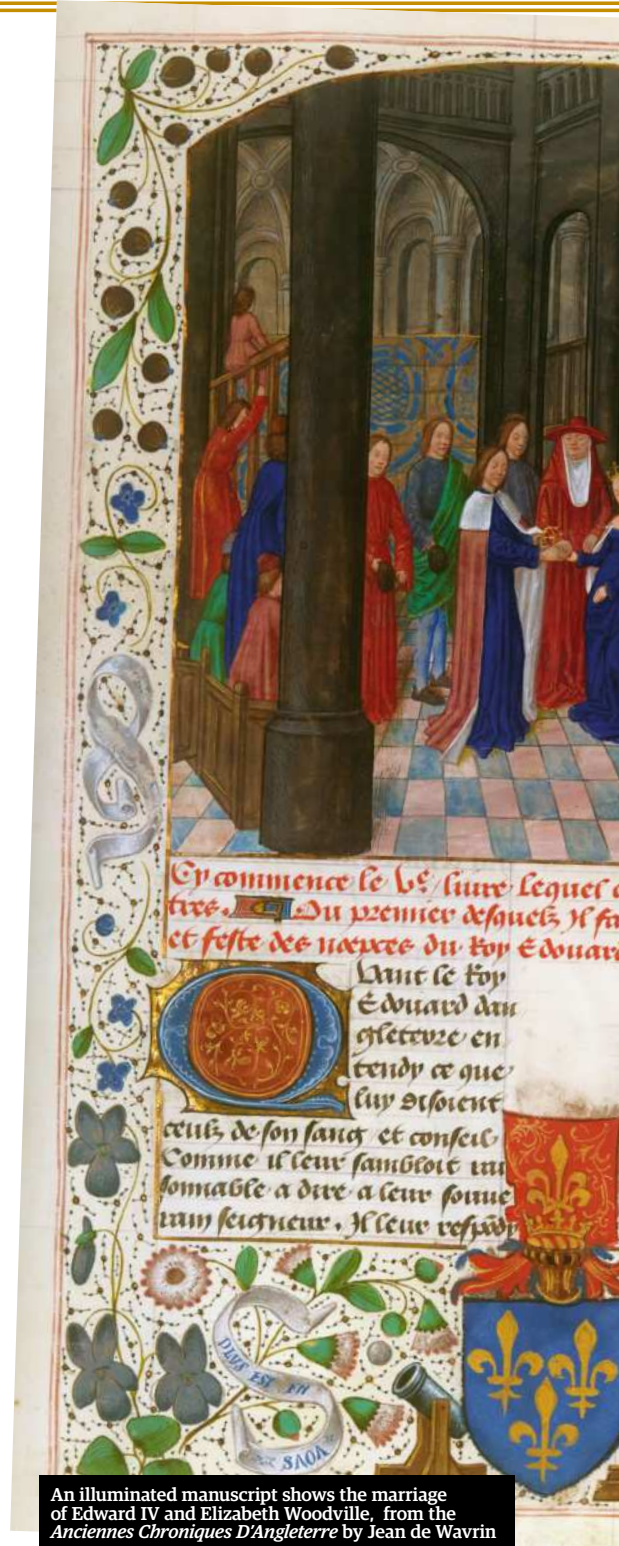 Cy commence le Ve liure Lequel
tres. Du premier desquelz Il
et feste des noepces du Roy Edouard
Quant le Roy
Edouard dan
gleterre en
tendy ce que
luy disoient
ceulz de son sang et conseil
Comme il leur sambloit
sonnable a dire a leur souue
rain seigneur. Il leur respõdy
PLUS EST EN
VOUS
An illuminated manuscript shows the marriage
of Edward IV and Elizabeth Woodville, from the
Anciennes Chroniques D'Angleterre by Jean de Wavrin